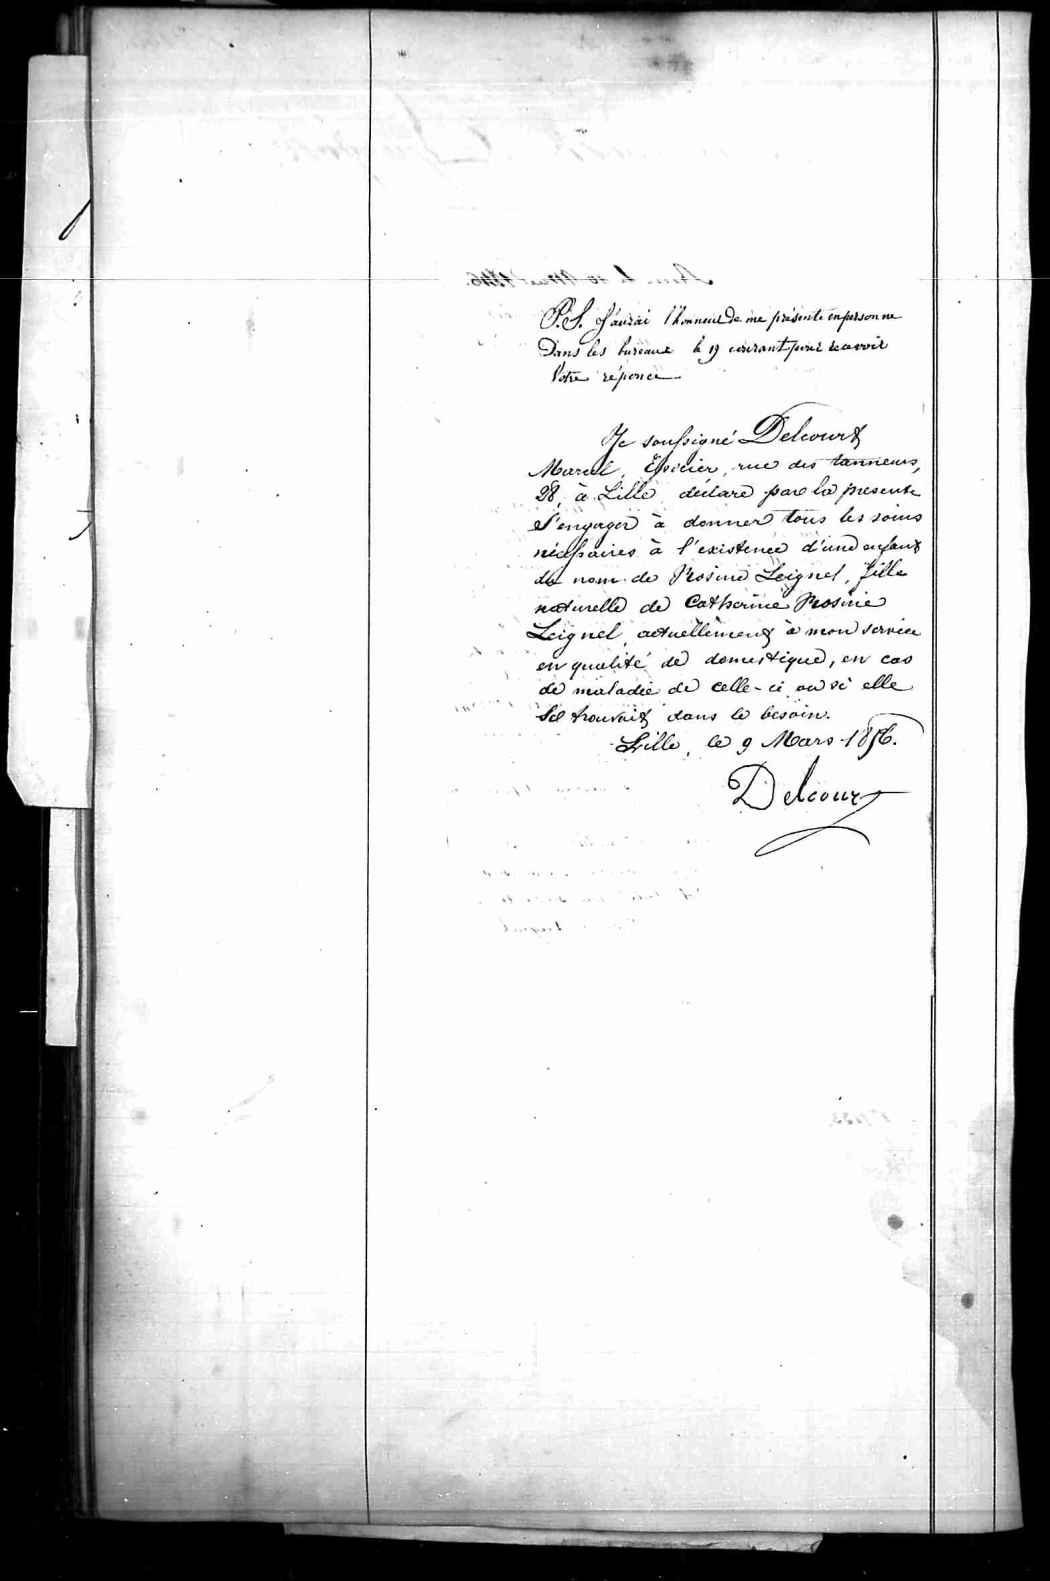 P.S. J'aurai l'honneur de me présenté en personne
Dans les bureaux le 19 courant pour recevoir
Votre réponce
Je soussigné Delcourt
Marcel, Épicier, rue des tanneurs,
28, à Lille, déclare par la présente
s'engager à donner tous les soins
nécessaires à l'existence d'une enfant
du nom de Rosine Leignel, fille
naturelle de Catherine Rosine
Leignel, actuellement à mon service
en qualité de domestique, en cas
de maladie de celle-ci ou si elle
se trouvait dans le besoin.
Lille, le 9 Mars 1856.
Delcourt